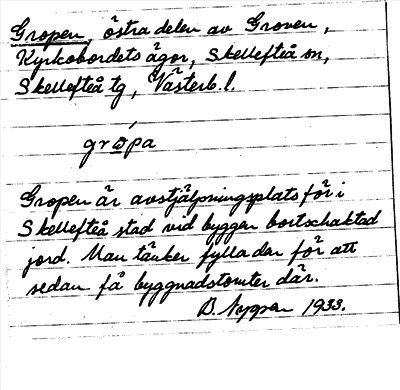 Gropen, östra delen av Groven,
Kyrkobordets ägor, Skellefteå sn,
Skellefteå tg, Västerb. l.
gropa
Gropen är avstjälpningsplats för i
Skellefteå stad vid byggen bortschaktad
jord. Man tänker fylla den för att
sedan få byggnadstomter där.
B. 1933.